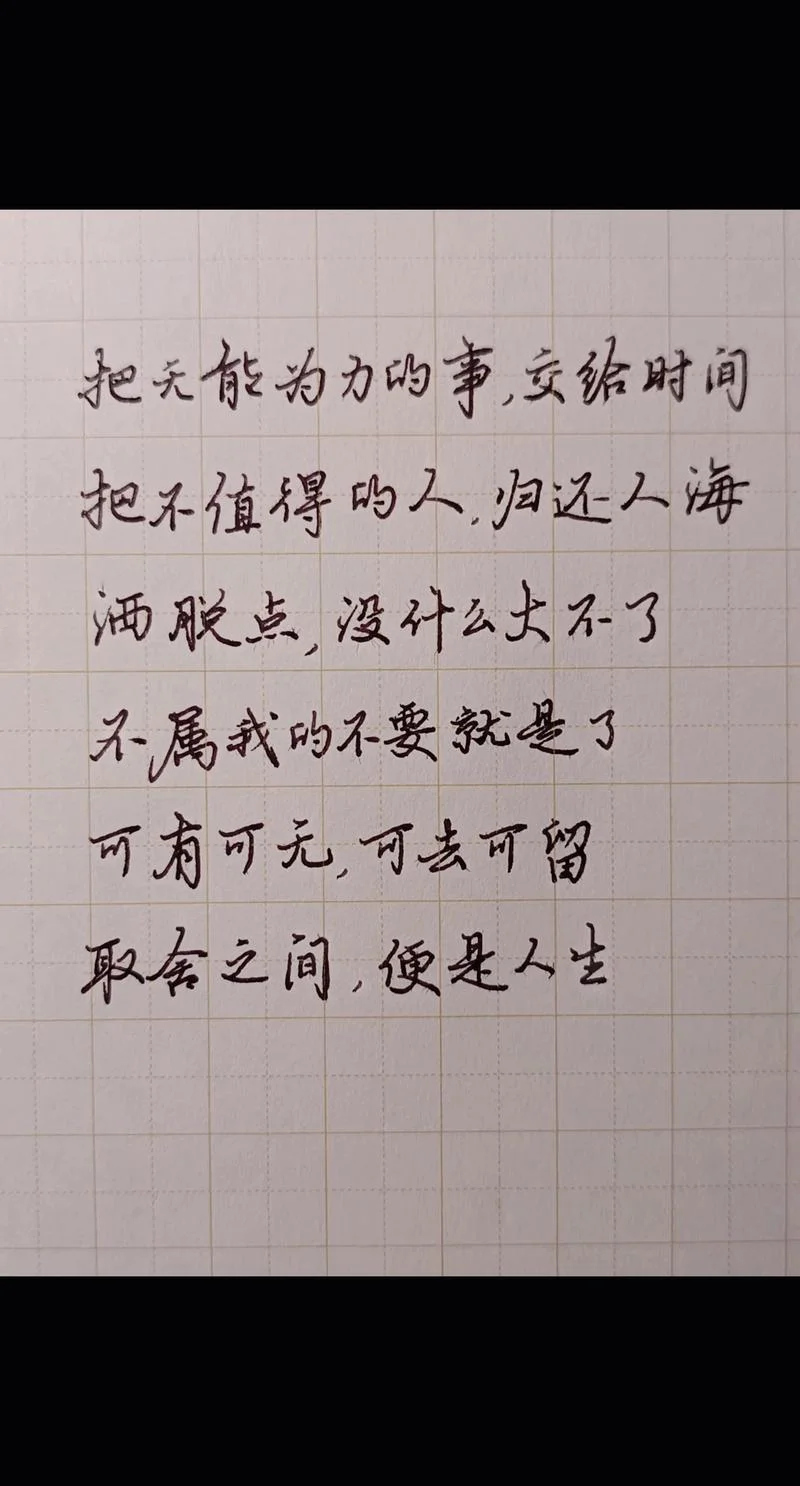 把无能为力的事,交给时间
把不值得的人,归还人海
洒脱点,没什么大不了
不属我的不要就是了
可有可无,可去可留
取舍之间,便是人生